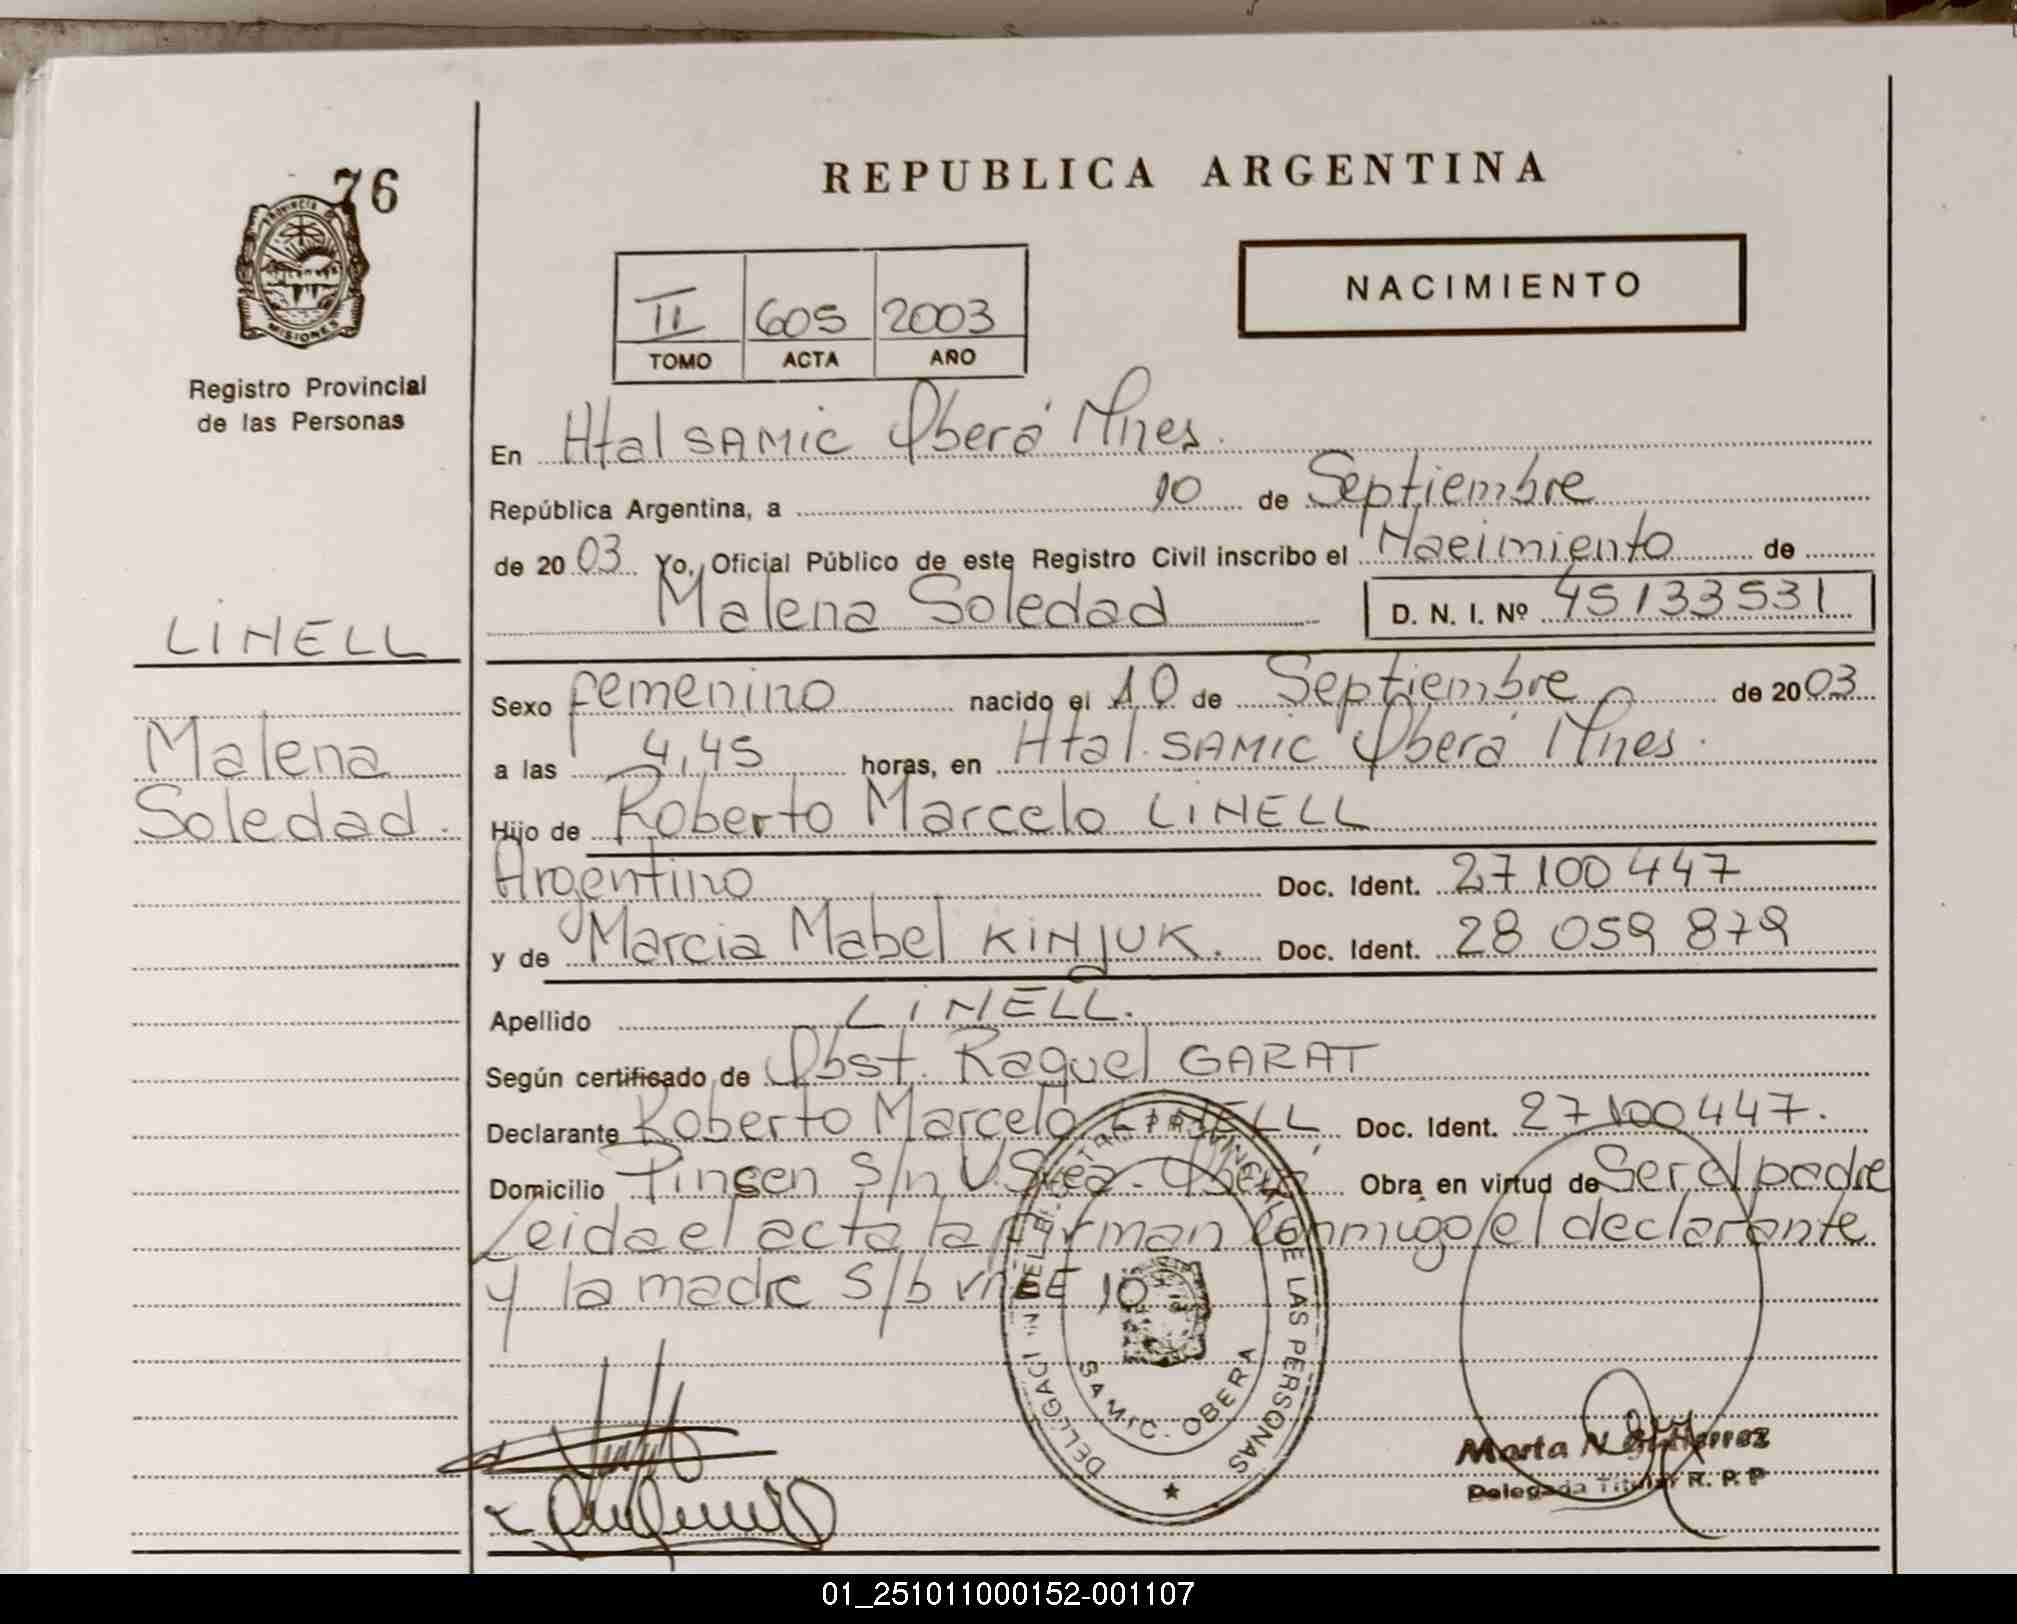 76
PROVINCIA DE
MISIONES
Registro Provincial
de las Personas
LINELL
Malena
Soledad.
REPUBLICA ARGENTINA
NACIMIENTO
II 605 2003
TOMO ACTA AÑO
En Htal SAMIC Oberá Mnes.
República Argentina, a 10 de Septiembre
de 2003 Yo, Oficial Público de este Registro Civil inscribo el Nacimiento de
Malena Soledad D. N. I. Nº 45133531
Sexo femenino nacido el 10 de Septiembre de 2003
a las 4,45 horas, en Htal. SAMIC Oberá Mnes.
Hijo de Roberto Marcelo LINELL
Argentino Doc. Ident. 27100447
y de Marcia Mabel KINJUK. Doc. Ident. 28 059 879
Apellido LINELL.
Según certificado de Obst. Raquel GARAT
Declarante Roberto Marcelo LINELL Doc. Ident. 27100447.
Domicilio Pincen S/n V. Oberá Obra en virtud de Ser el padre
Leida el acta la firman conmigo el declarante
y la madre S/b 10
REGISTRO PROVINCIAL DE LAS PERSONAS
SAMIC. OBERA
Marta N Gutierrez
Delegada Titular R. P. P
01_251011000152-001107